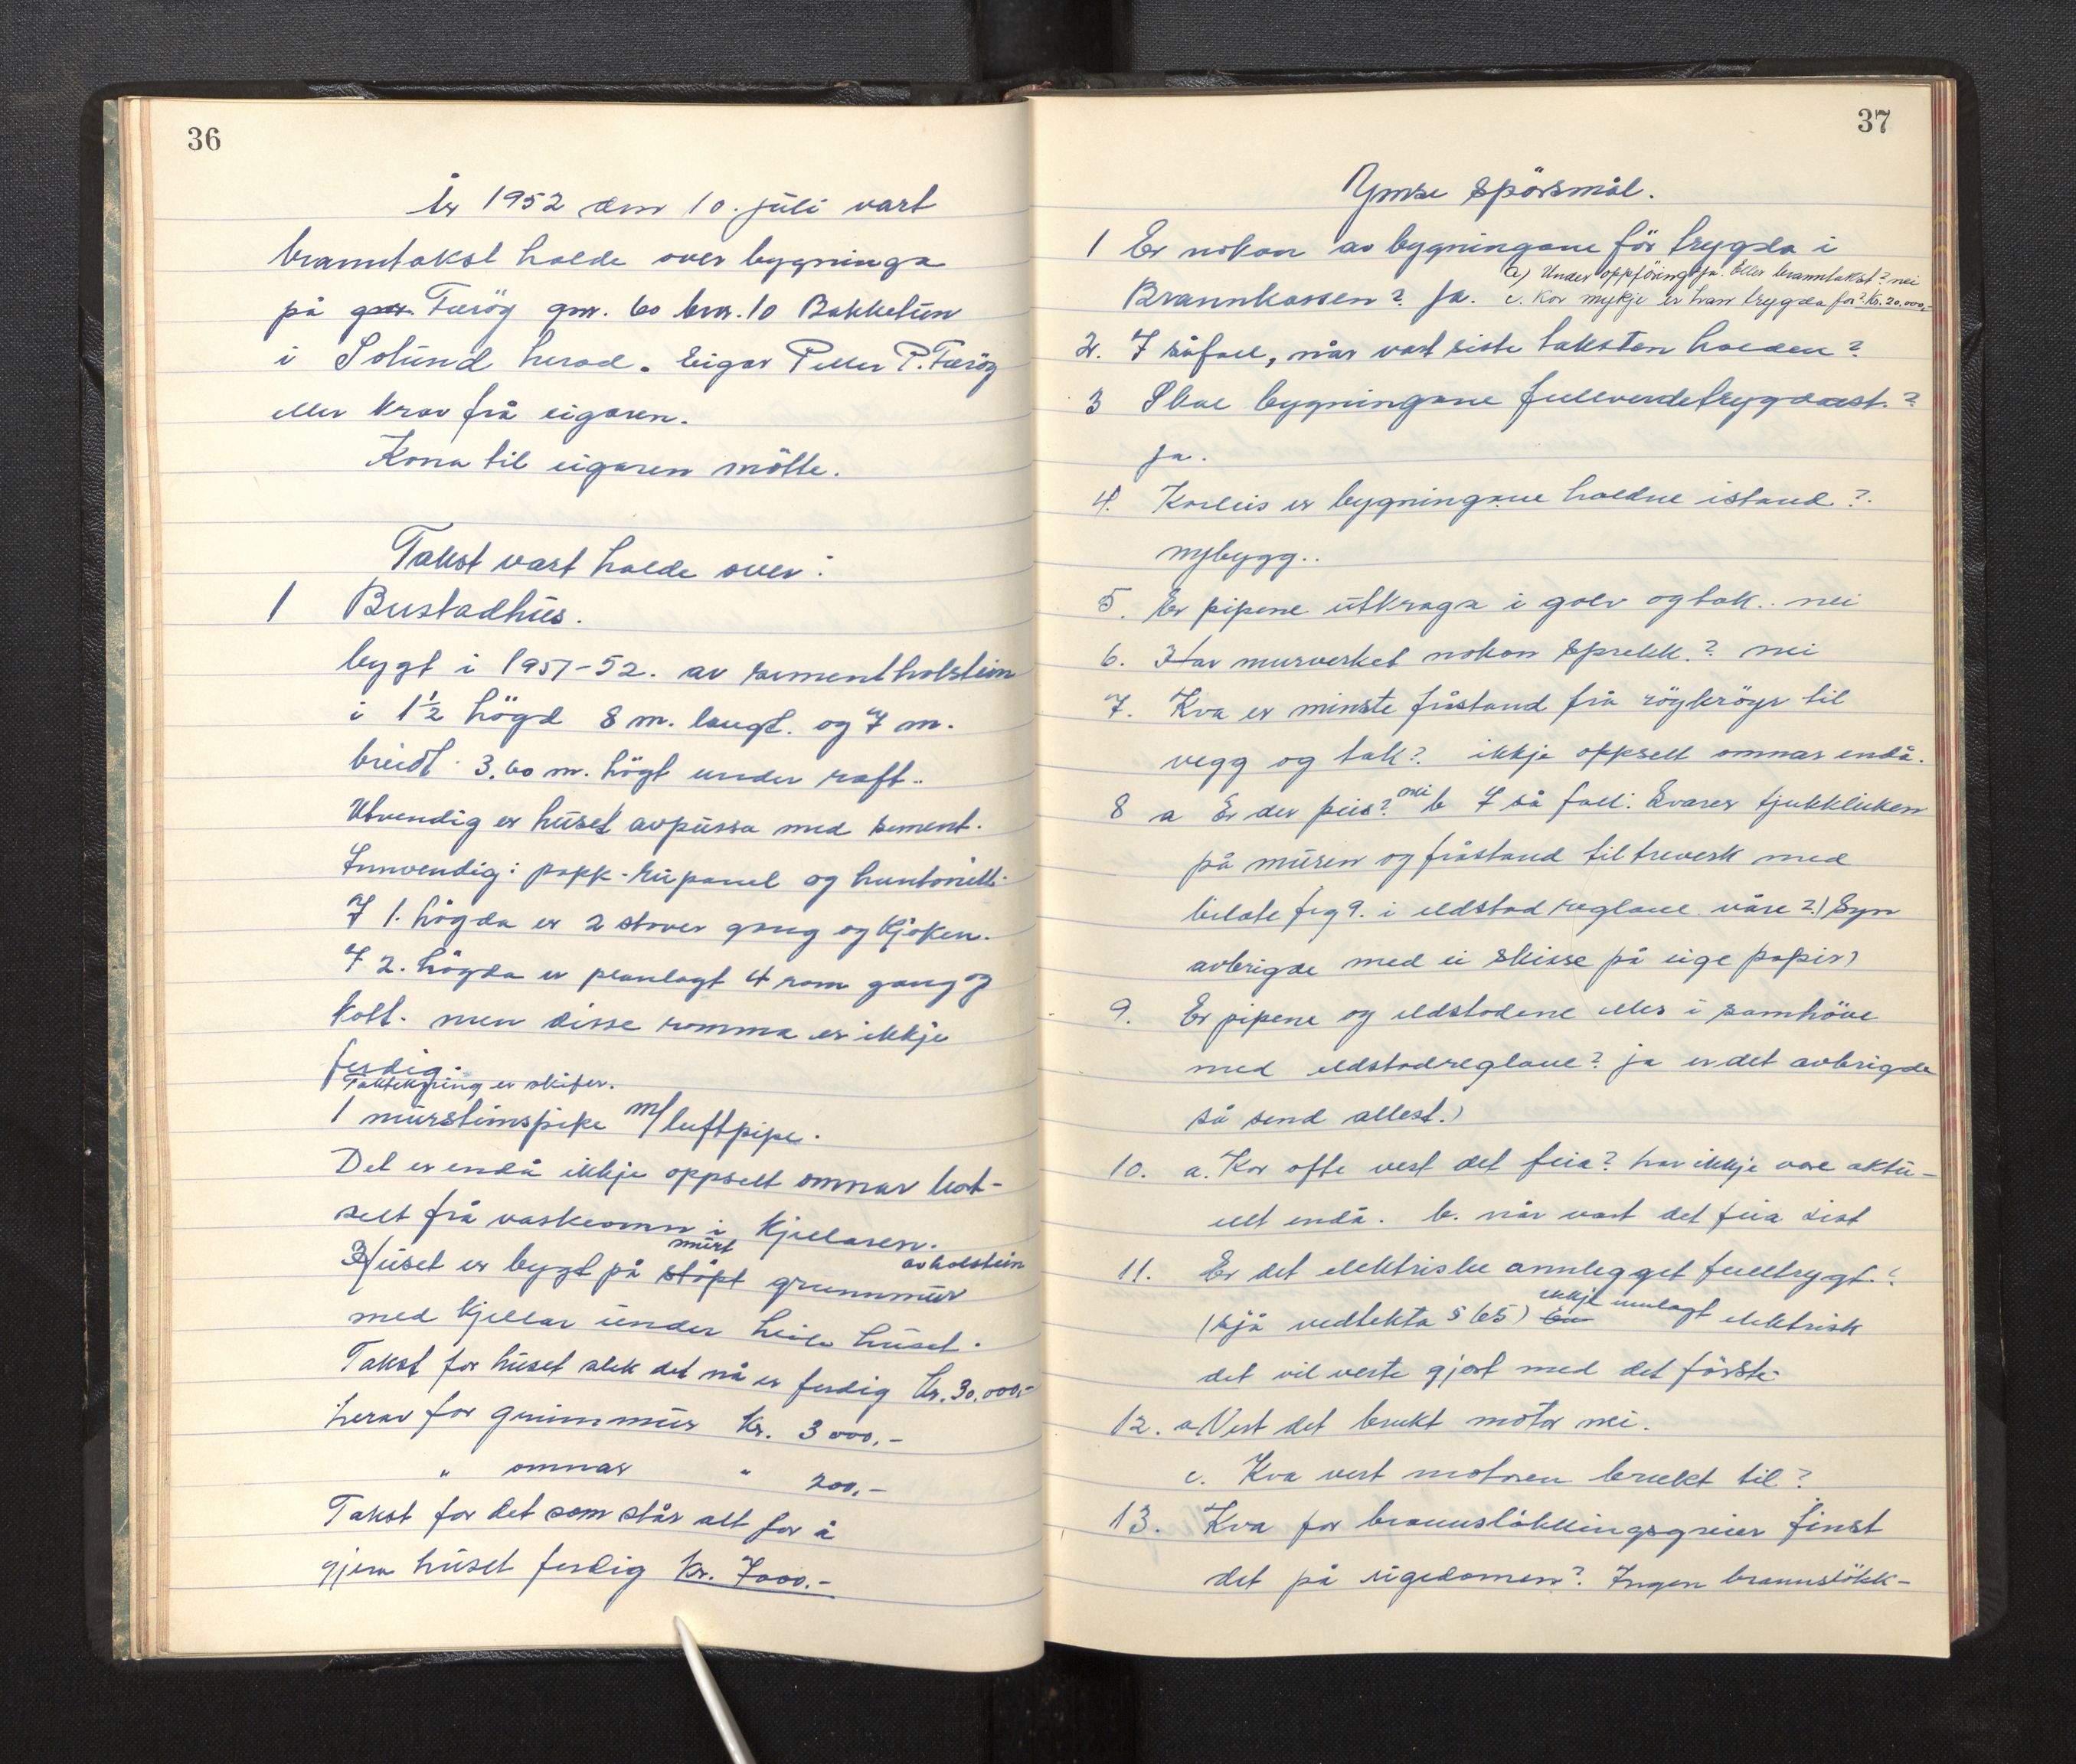 36
År 1952 den 10. juli vart
branntakst halde over bygninga
på gnr. Færöy gnr. 60 bnr. 10 Bakketun
i Solund herad. Eigar Petter P. Færöy
etter krav frå eigaren.
Kona til eigaren mötte.
Takst vart halde over:
1 Bustadhus.
bygt i 1951-52. av sementholstein
i 1½ högd 8 m. langt. og 7 m.
breidt. 3,60 m. högt under raft..
Utvendig er huset avpussa med sement.
Innvendig: papp-rupanel og huntonitt.
I 1. högda er 2 stover gang og kjöken.
I 2. högda er planlagt 4 rom gang og
kott. men disse romma er ikkje
ferdig.
Taktekjning er skifer.
1 murstinspipe m/luftpipe.
Det er endå ikkje oppsett omnar bort-
sett frå vaskeomn i kjellaren.
Huset er bygt på stöpt murt grunnmur av holstein
med kjellar under heile huset.
Takst for huset slik det nå er ferdig kr. 30.000,-
herav for grunnmur kr. 3000,-
" omnar " 200,-
Takst for det som står att for å
gjera huset ferdig kr. 7000.-
37
Ymse spörsmål.
1 Er nokon av bygningane för trygda i
Brannkassen? Ja. a) Under oppföring? ja. Eller branntakst? nei
c. Kor mykje er han trygda for? Kr. 20.000,-
2. I såfall, når vart siste taksten halden?
3 Skal bygningane fullverdetrygdast.?
ja.
4. Korleis er bygningane haldne istand?
nybygg..
5. Er pipene utkraga i golv og tak.. nei
6. Har murverket nokon sprekk.? nei
7. Kva er minste fråstand frå röykröyr til
vegg og tak? ikkje oppsett omnar endå.
8 a Er der peis? nei b I så fall: Svarer tjukkleiken
på muren og fråstand til treverk med
bilete fig 9. i eldstad reglane våre?.) Syn
avbrigde med ei skisse på eige papir)
9. Er pipene og eldstadene elles i samhöve
med eldstadreglane? ja er det avbrigde
så send attest.)
10. a. Kor ofte vert det feia? har ikkje vore aktu-
ellt endå. b. når vart det feia sist
11. Er det elektriske annlegget fulltrygt.?
(Sjå vedtekta § 65) Er ikkje innlagt elektrisk
det vil verte gjort med det förste.
12. a Vert det brukt motor nei.
c. Kva vert motoren brukt til?
13. Kva for brannslökkingsgreier finst
det på eigedomen? Ingen brannslökk-